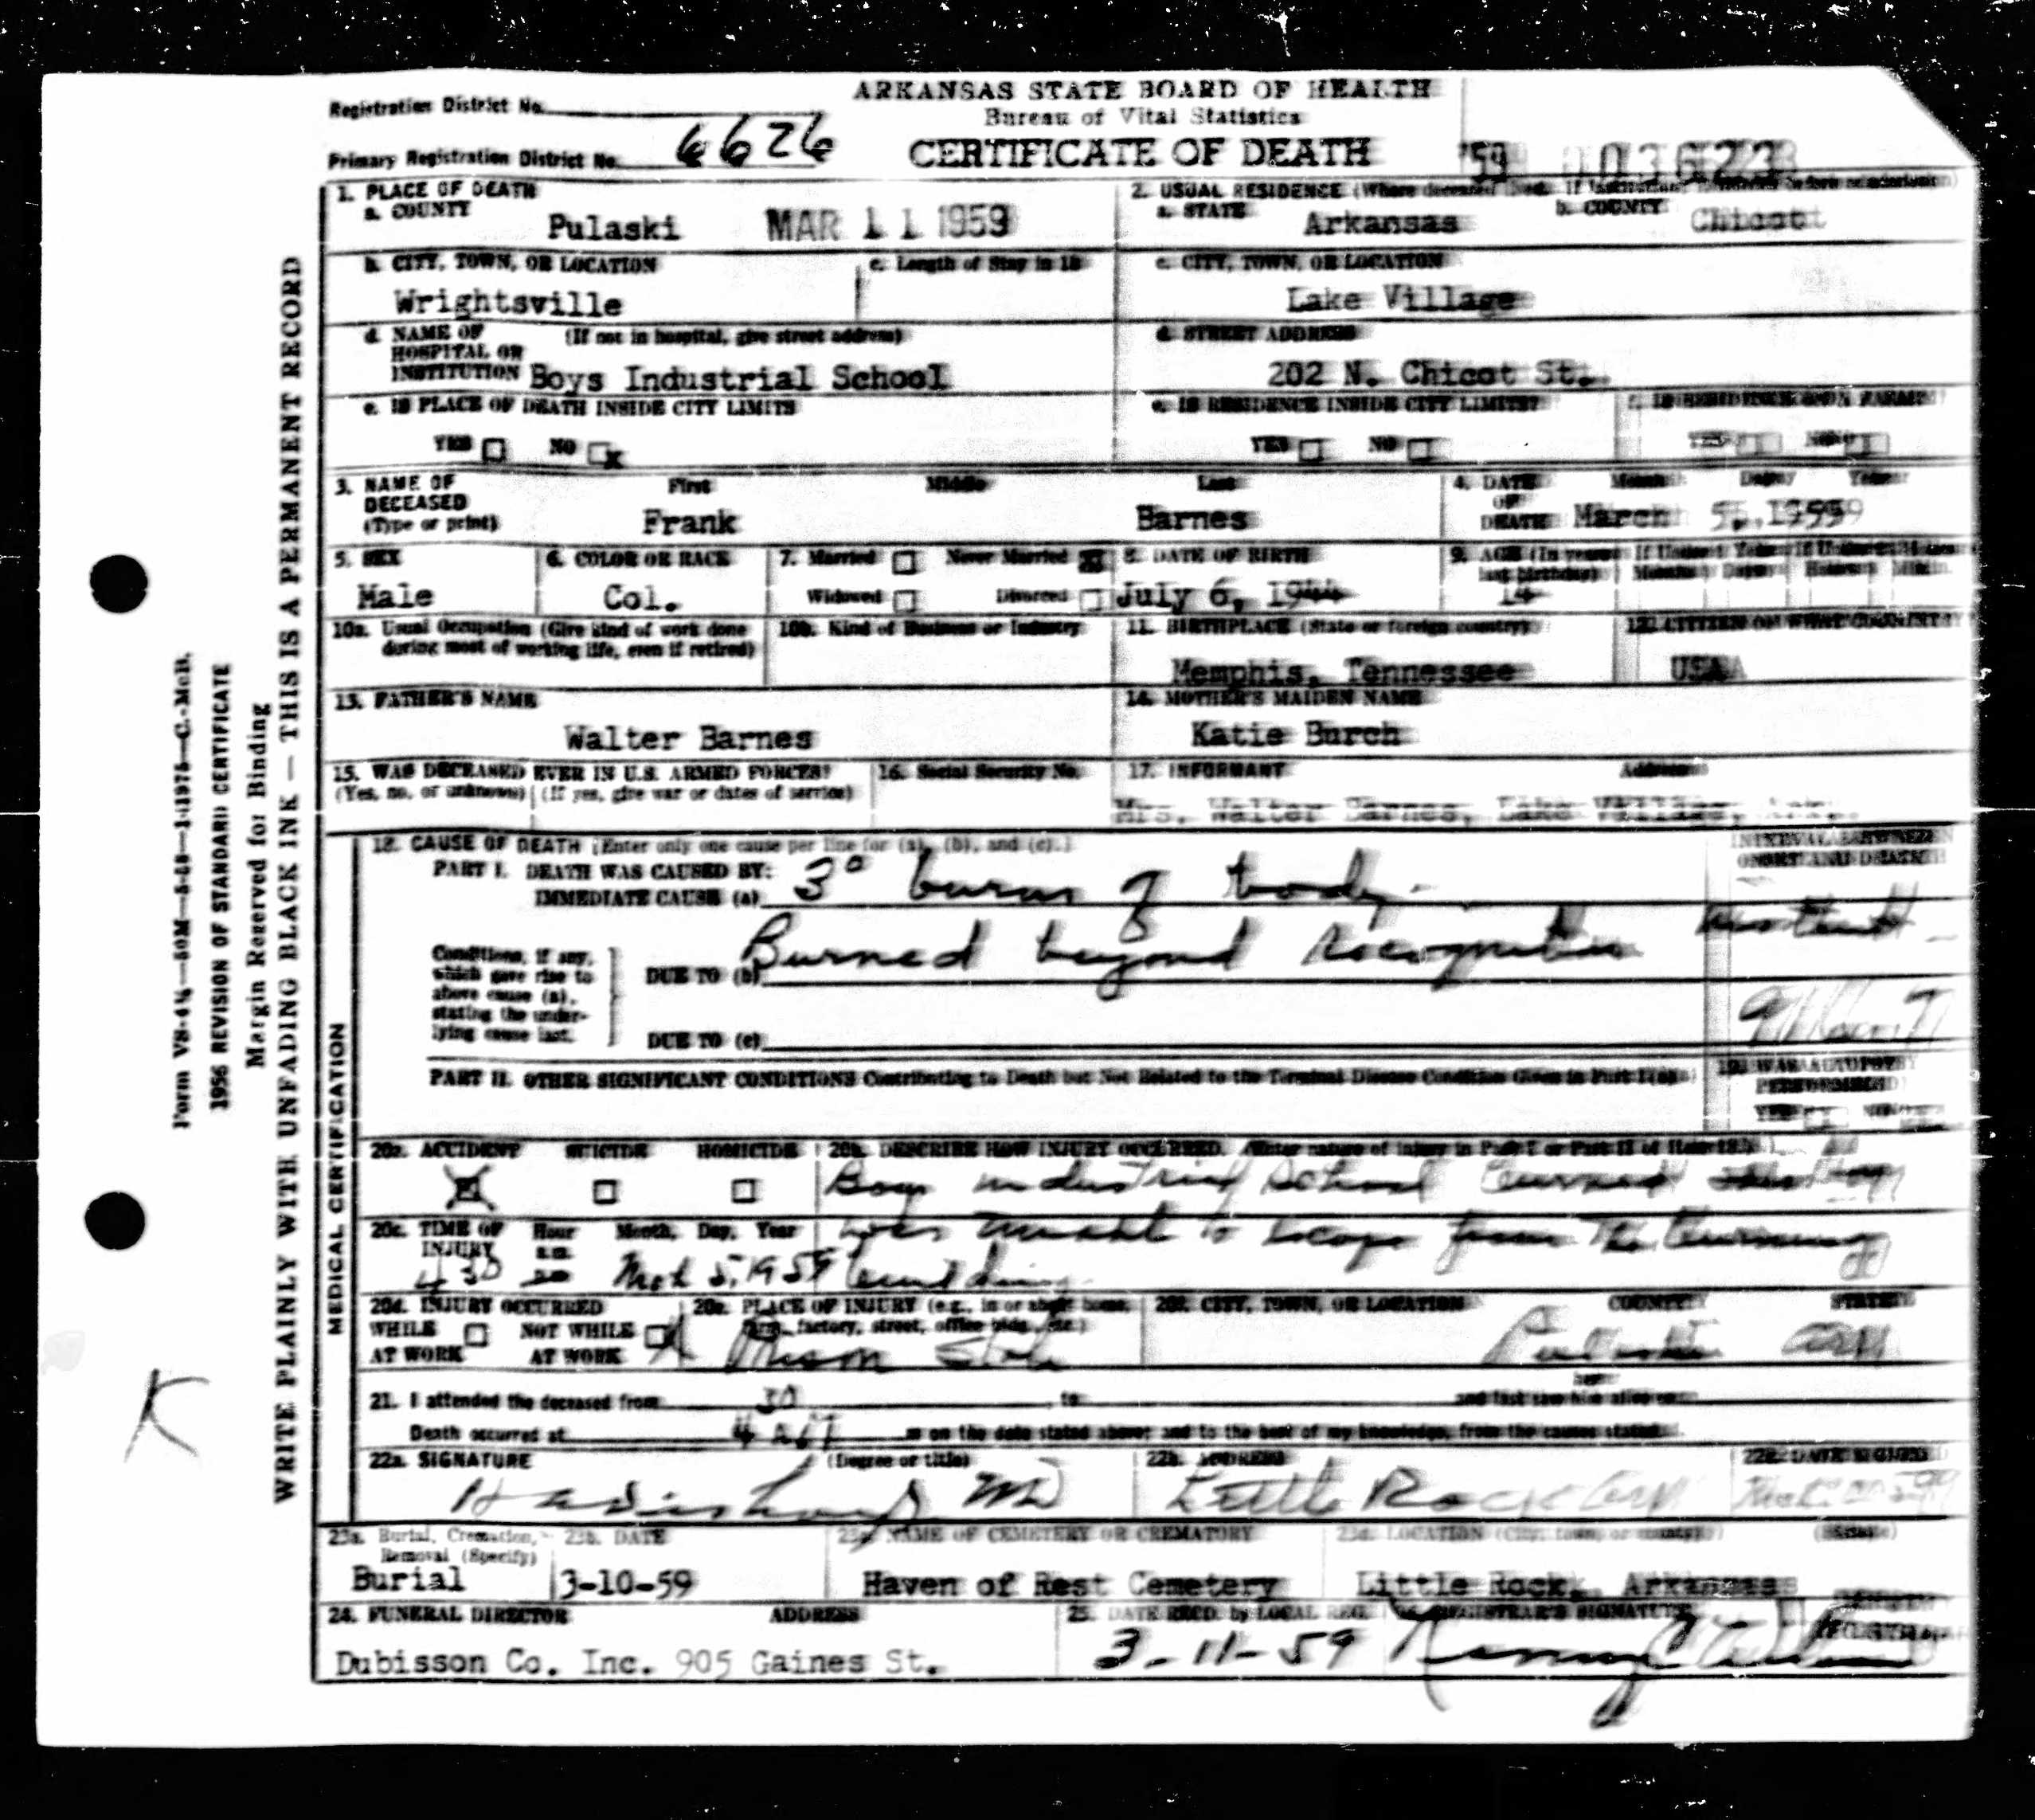 ARKANSAS STATE BOARD OF HEALTH
Bureau of Vital Statistics
CERTIFICATE OF DEATH
Registration District No.
Primary Registration District No. 6626
'59
1. PLACE OF DEATH
a. COUNTY
Pulaski MAR 11 1959
2. USUAL RESIDENCE (Where deceased lived. If institution: residence before admission)
a. STATE Arkansas b. COUNTY Chicot
b. CITY, TOWN, OR LOCATION
Wrightsville
c. Length of Stay in 1b
c. CITY, TOWN, OR LOCATION
Lake Village
d. NAME OF (If not in hospital, give street address)
HOSPITAL OR
INSTITUTION Boys Industrial School
d. STREET ADDRESS
202 N. Chicot St.
e. IS PLACE OF DEATH INSIDE CITY LIMITS
YES NO x
e. IS RESIDENCE INSIDE CITY LIMITS?
YES NO
f. IS RESIDENCE ON A FARM?
YES NO
3. NAME OF DECEASED (Type or print)
First Middle Last
Frank Barnes
4. DATE OF DEATH Month Day Year
March 5, 1959
5. SEX
Male
6. COLOR OR RACE
Col.
7. Married Never Married
Widowed Divorced
8. DATE OF BIRTH
July 6, 1944
9. AGE (In years last birthday)
14
If Under 1 Year If Under 24 Hrs.
Months Days Hours Min.
10a. Usual Occupation (Give kind of work done
during most of working life, even if retired)
10b. Kind of Business or Industry
11. BIRTHPLACE (State or foreign country)
Memphis, Tennessee
12. CITIZEN OF WHAT COUNTRY?
USA
13. FATHER'S NAME
Walter Barnes
14. MOTHER'S MAIDEN NAME
Katie Burch
15. WAS DECEASED EVER IN U.S. ARMED FORCES?
(Yes, no, or unknown) (If yes, give war or dates of service)
16. Social Security No.
17. INFORMANT Address
Mrs. Walter Barnes, Lake Village, Ark.
18. CAUSE OF DEATH [Enter only one cause per line for (a), (b), and (c).]
INTERVAL BETWEEN
ONSET AND DEATH
PART I. DEATH WAS CAUSED BY:
IMMEDIATE CAUSE (a) 3° burns of body.
Conditions, if any,
which gave rise to
above cause (a),
stating the under-
lying cause last.
DUE TO (b) Burned beyond recognition
DUE TO (c)
PART II. OTHER SIGNIFICANT CONDITIONS Contributing to Death but Not Related to the Terminal Disease Condition Given in Part I(a)
19. WAS AUTOPSY
PERFORMED?
YES NO
20a. ACCIDENT SUICIDE HOMICIDE
20b. DESCRIBE HOW INJURY OCCURRED. (Enter nature of injury in Part I or Part II of item 18.)
Boys industrial school burned
was unable to escape from the burning
building.
20c. TIME OF INJURY Hour Month, Day, Year
a.m.
4 30 Mch 5, 1959
20d. INJURY OCCURRED
WHILE AT WORK NOT WHILE AT WORK
20e. PLACE OF INJURY (e.g., in or about home,
farm, factory, street, office bldg., etc.)
20f. CITY, TOWN, OR LOCATION COUNTY STATE
Pulaski Ark
21. I attended the deceased from to and last saw him alive on
Death occurred at m on the date stated above; and to the best of my knowledge, from the causes stated.
22a. SIGNATURE (Degree or title)
MD
22b. ADDRESS
Little Rock Ark
22c. DATE SIGNED
23a. Burial, Cremation,
Removal (Specify)
Burial
23b. DATE
3-10-59
23c. NAME OF CEMETERY OR CREMATORY
Haven of Rest Cemetery
23d. LOCATION (City, town, or county) (State)
Little Rock, Arkansas
24. FUNERAL DIRECTOR ADDRESS
Dubisson Co. Inc. 905 Gaines St.
25. DATE RECD. by LOCAL REG.
3-11-59
26. REGISTRAR'S SIGNATURE
MEDICAL CERTIFICATION
WRITE PLAINLY WITH UNFADING BLACK INK — THIS IS A PERMANENT RECORD
Margin Reserved for Binding
1956 REVISION OF STANDARD CERTIFICATE
K